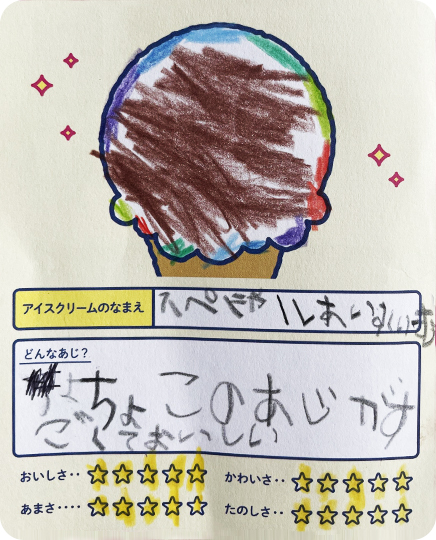 アイスクリームのなまえ
どんなあじ？
ちょこのあじが
ごくておいしい
おいしさ‥ ☆☆☆☆☆
かわいさ‥ ☆☆☆☆☆
あまさ‥‥ ☆☆☆☆☆
たのしさ‥ ☆☆☆☆☆